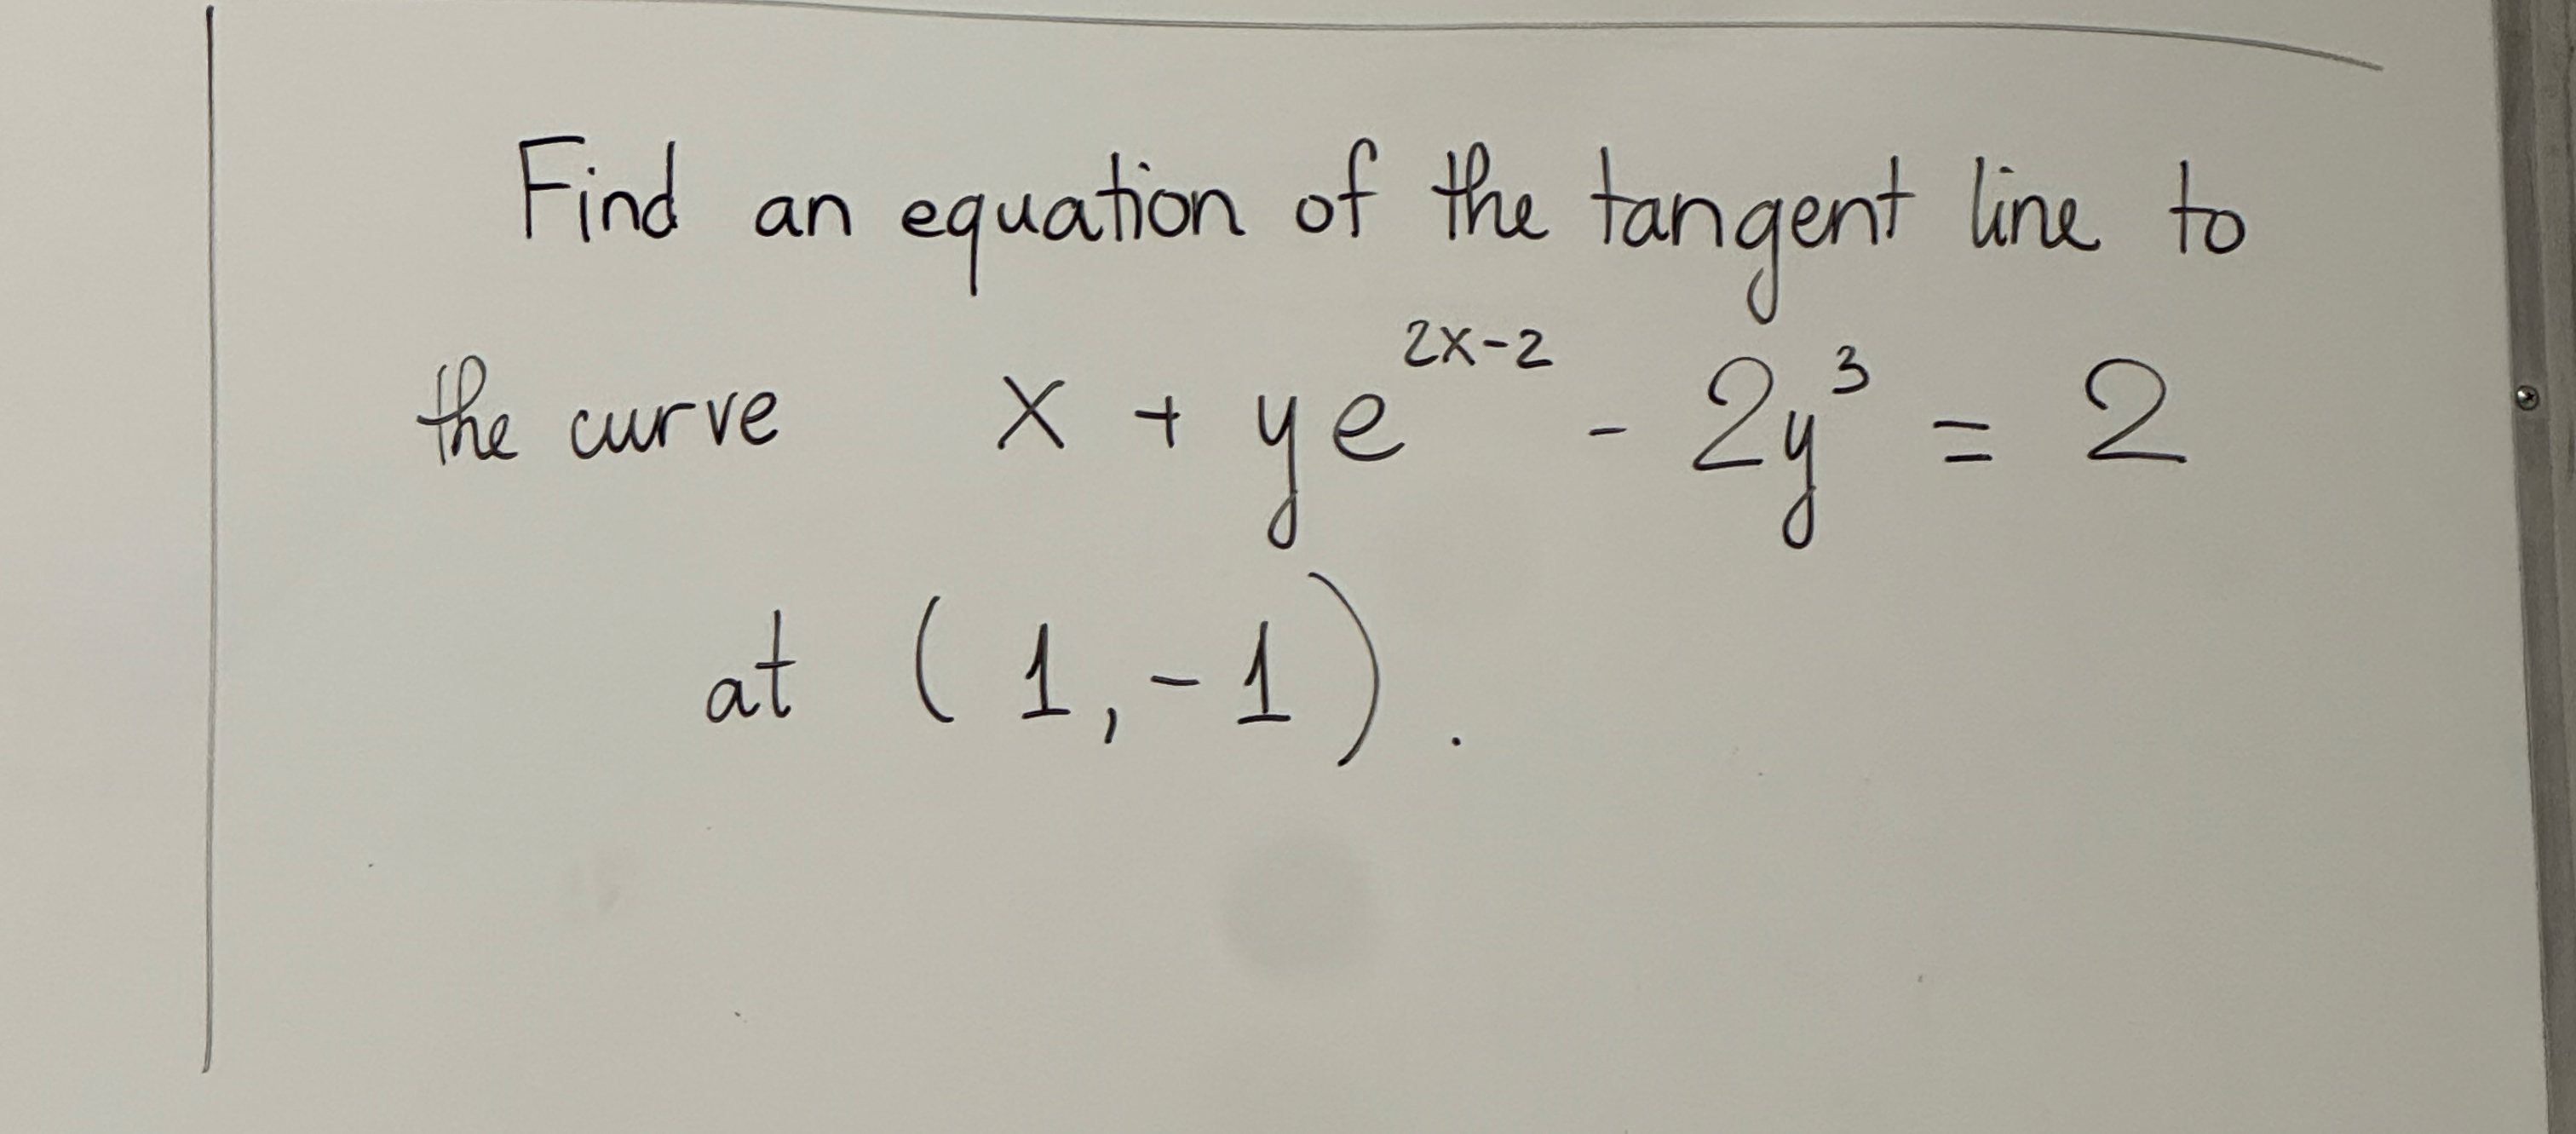 Find an equation of the tangent line to
the curve x + ye^{2x-2} - 2y^3 = 2
at (1, -1).